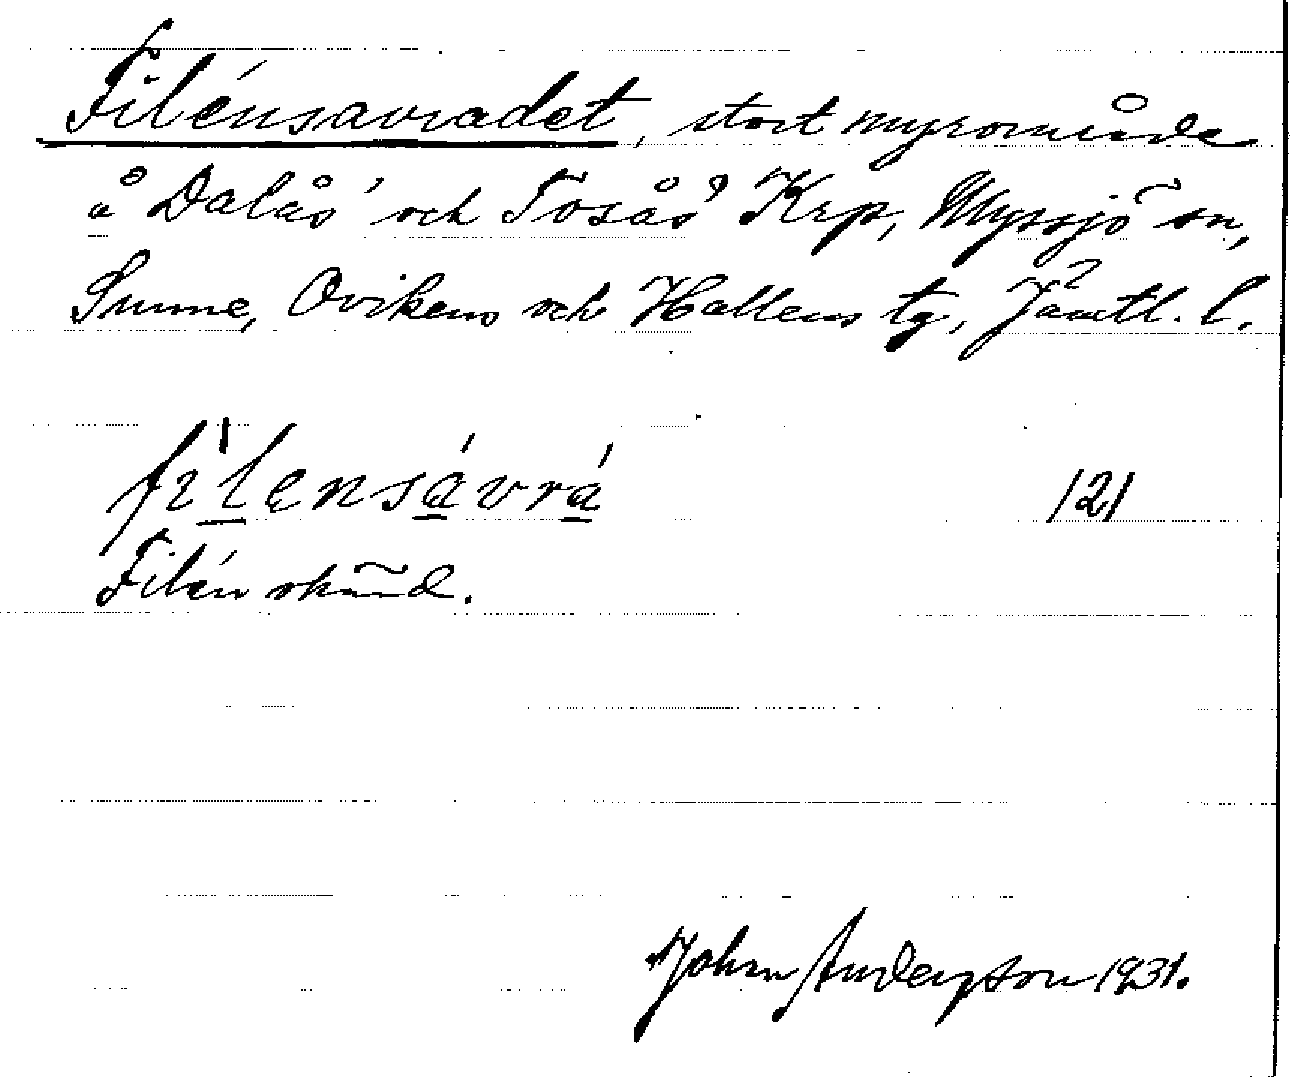 Filénsavradet, stort myrområde
å Dalås' och Tosås' Krp, Myssjö sn,
Sunne, Ovikens och Hallens tg, Jämtl. l.
filensávrá 121
Filén okänd.
John Anderson 1931.